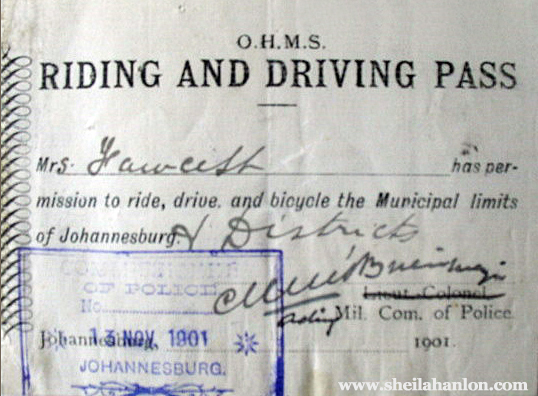 O.H.M.S.
RIDING AND DRIVING PASS
Mrs. Fawcett has per-
mission to ride, drive, and bicycle the Municipal limits
of Johannesburg. & Districts
COMMISSIONER
OF POLICE
No.
Lieut.-Colonel,
acting Mil. Com. of Police
Johannesburg, 13 NOV 1901 1901.
JOHANNESBURG.
www.sheilahanlon.com